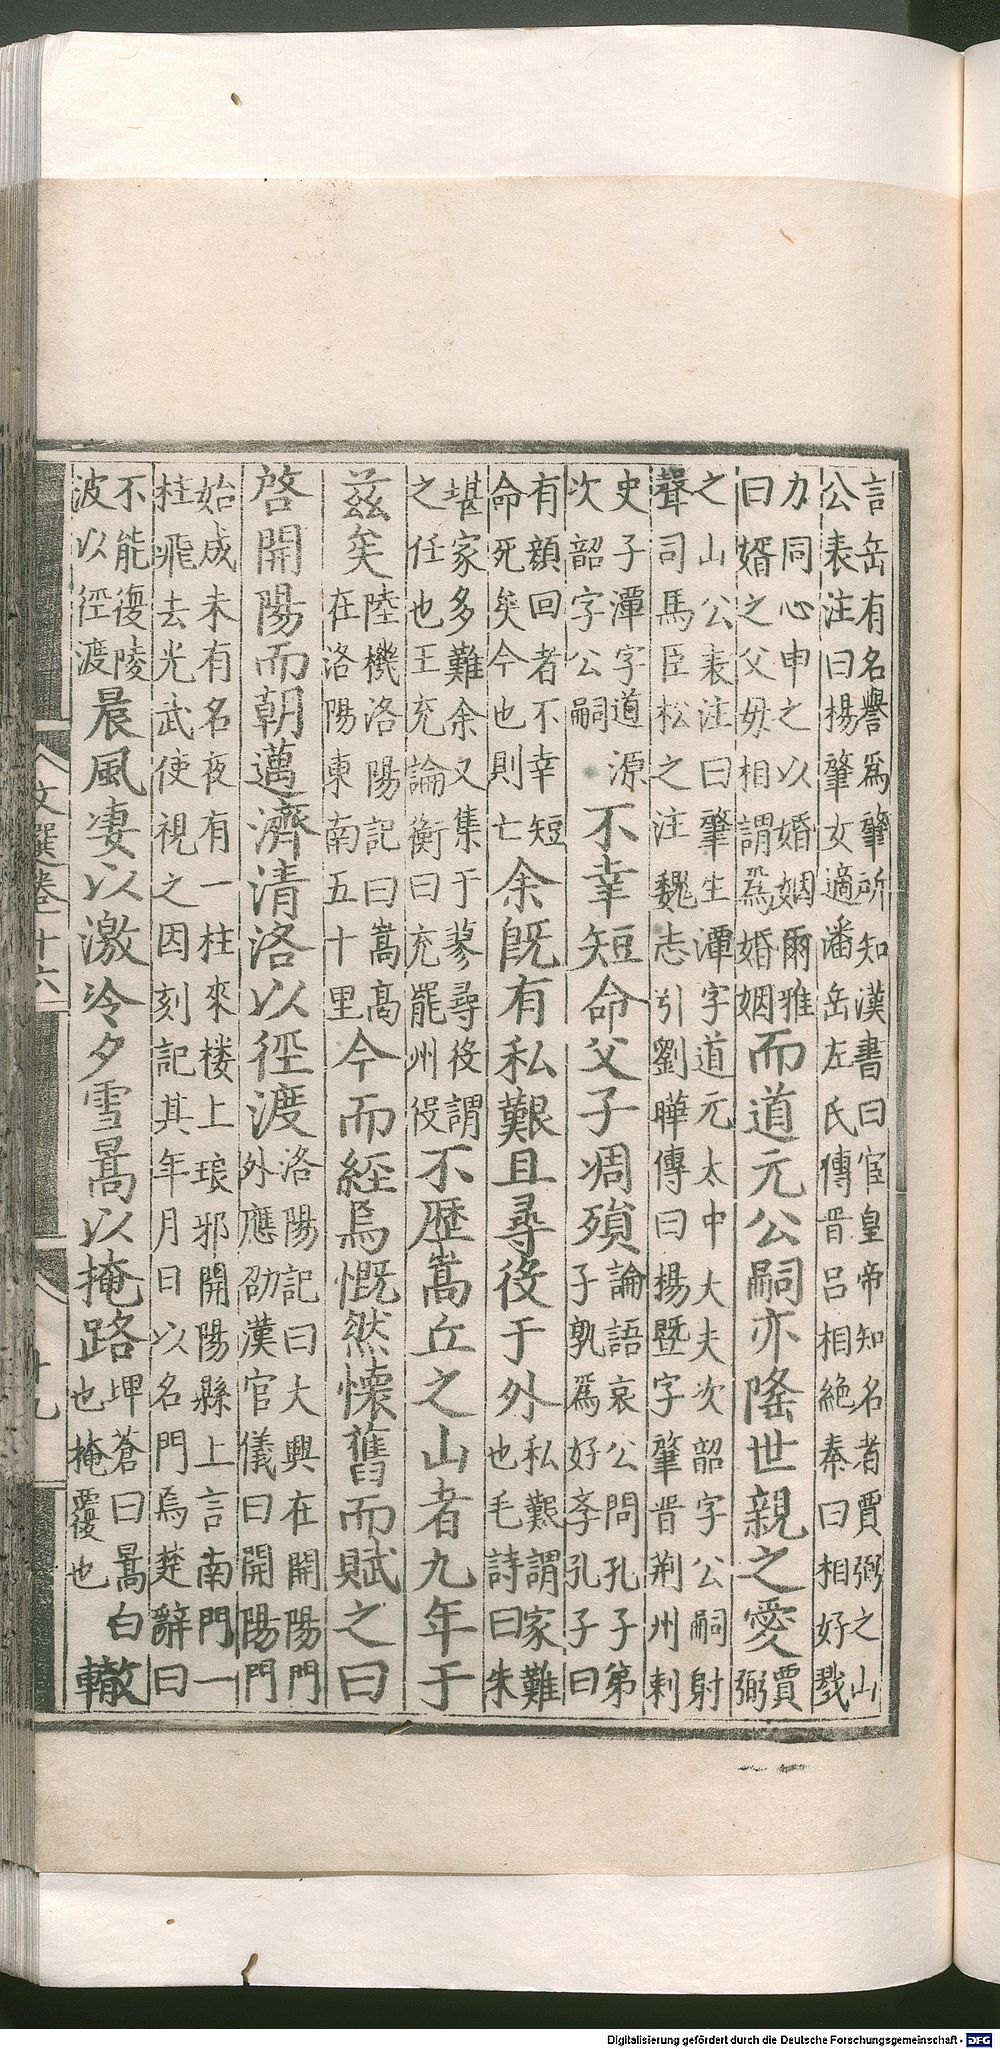 言岳有名譽爲肇所知漢書曰宦皇帝知名者賈弼之山
公表注曰楊肇女適潘岳左氏傳晉呂相絶秦曰相好戮
力同心申之以婚姻爾雅
曰婿之父母相謂爲婚姻而道元公嗣亦隆世親之愛賈
弼
之山公表注曰肇生潭字道元太中大夫次韶字公嗣射
聲司馬臣松之注魏志引劉曄傳曰楊曁字肇晉荊州刺
史子潭字道源
次韶字公嗣不幸短命父子凋殞論語哀公問孔子弟
子孰爲好孝孔子曰
有顏回者不幸短
命死矣今也則亡余既有私艱且尋役于外私艱謂家難
也毛詩曰朱
堪家多難余又集于蓼尋役謂
之任也王充論衡曰充罷州役不歷嵩丘之山者九年于
茲矣陸機洛陽記曰嵩高
在洛陽東南五十里今而經焉慨然懷舊而賦之曰
啓開陽而朝邁濟清洛以徑渡洛陽記曰大興在開陽門
外應劭漢官儀曰開陽門
始成未有名夜有一柱來楼上琅邪開陽縣上言南門一
柱飛去光武使視之因刻記其年月日以名門焉楚辭曰
不能復陵
波以徑渡晨風凄以激冷夕雪暠以掩路埤蒼曰暠白
也掩覆也轍
文選卷十六
十九
Digitalisierung gefördert durch die Deutsche Forschungsgemeinschaft - DFG